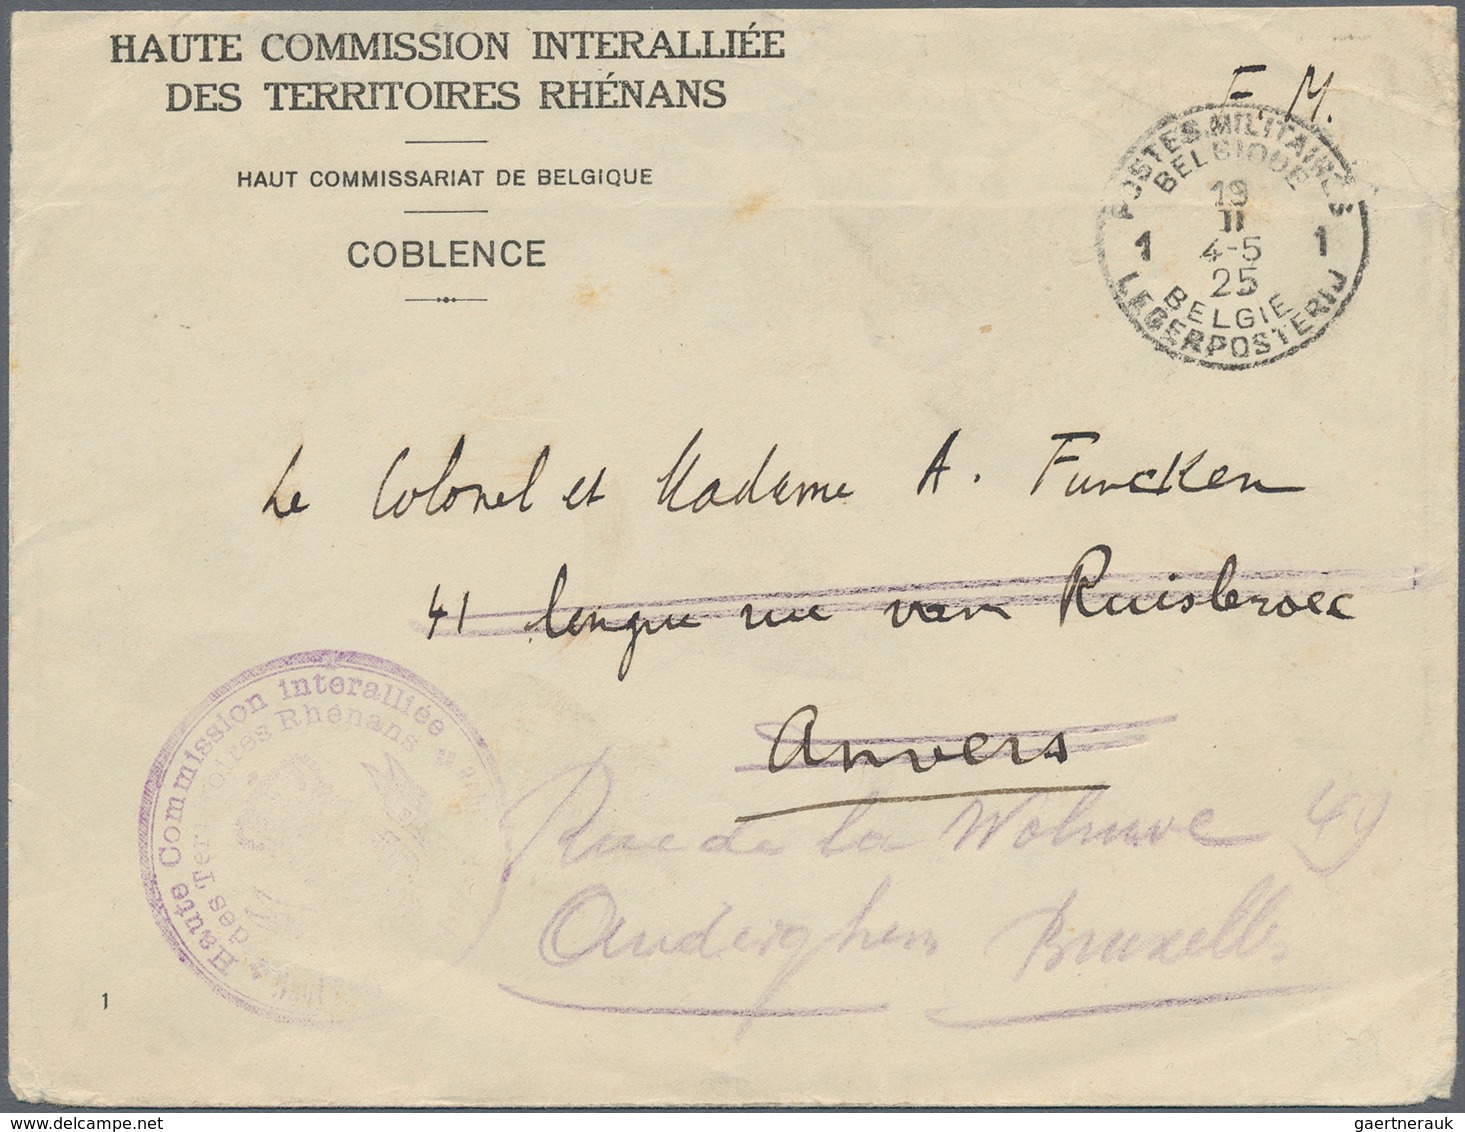 HAUTE COMMISSION INTERALLIÉE
DES TERRITOIRES RHÉNANS
HAUT COMMISSARIAT DE BELGIQUE
COBLENCE
F. M.
POSTES MILITAIRES
BELGIQUE
19
II
1 4-5 1
25
BELGIE
LEGERPOSTERIJ
Le Colonel et Madame A. Funcken
41 longue rue van Ruisbroec
Anvers
Rue de la Woluwe 49
Auderghem Bruxelles
Haute Commission interalliée
des Territoires Rhénans
1
gaertnerauk @ delcampe.net